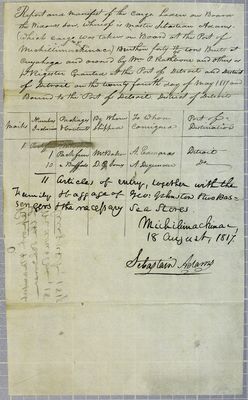 Report and manifest of the Cargo Laden on Board
the whereof is master Sebastian Adams
(which cargo was taken on Board at the Port of
Michilimackinac) Burthen forty tons Built at
Cuyahoga and owned by Wm. and others as
Register Granted at the Port of Detroit and district
of Detroit on the twenty fourth day of May 1811 and
Bound to the Port of Detroit District of Detroit
Marks Number Package By Whom To Whom Port of
Contents Shipped Consigned Destination
1
1 Pack furs McBaker A. Detroit
10 Buffalo A. Seymour Do
11 Articles of entry, together with the
Trunks & baggage of Geo: Johnston & us Pas-
sengers & the necessary Sea Stores
Michilimackinac
18 August, 1817.
Sebastian Adams